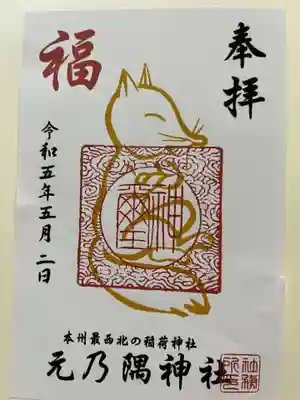 奉拝
福
令和五年五月二日
本州最西北の稲荷神社
元乃隅神社